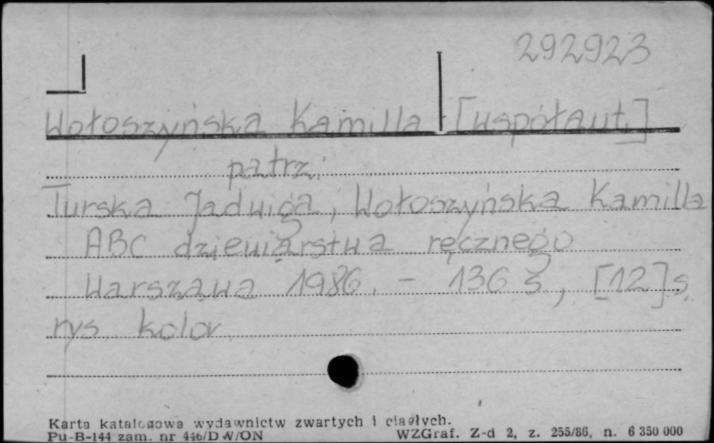 292923
Wołoszyńska Kamilla [współaut.]
patrz:
Turska Jadwiga, Wołoszyńska Kamilla
ABC dziewiarstwa ręcznego
Warszawa 1986. - 136 s, [12] s.
rys. kolor.
Karta katalogowa wydawnictw zwartych i ciągłych.
Pu-B-144 zam. nr 446/DW/ON WZGraf. Z-d 2, z. 255/86, n. 6 350 000